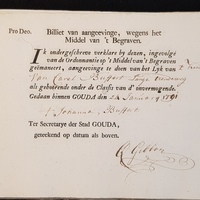 Pro Deo. Billiet van aangeevinge, wegens het
Middel van 't Begraven.
Ik ondergeschreve verklare by deezen, ingevolge
van de Ordonnantie op 't Middel van 't Begraven
geëmaneert, aangeevinge te doen van het Lyk van
Van Carel Buffart
als gehoorende onder de Classis van d' onvermogende.
Gedaan binnen GOUDA den 24 January 1791
Johanna Buffart
Ter Secretarye der Stad GOUDA,
gereekend op datum als boven.